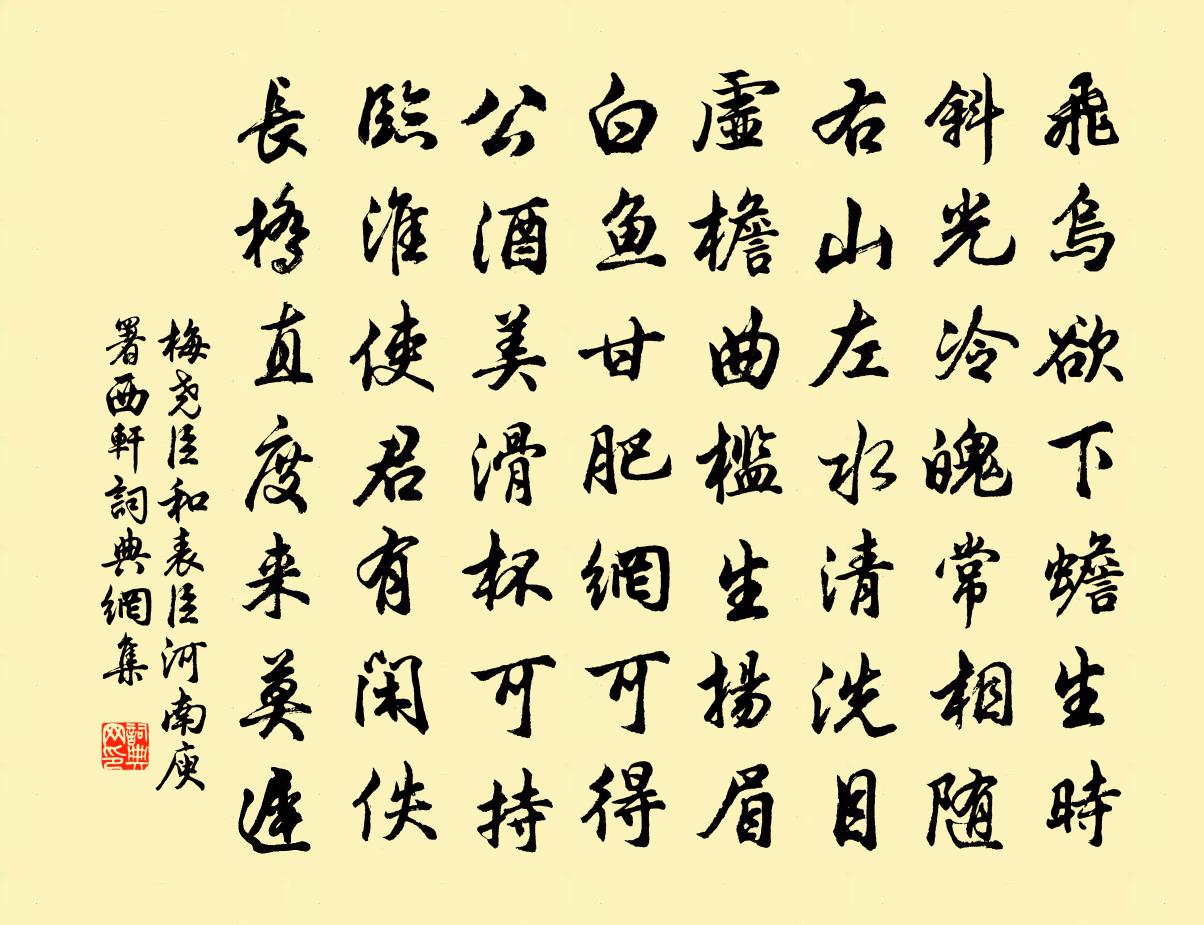 飛烏欲下蟾生時
斜光冷魄常相随
右山左水清洗目
虛檐曲檻生揚眉
白鱼甘肥網可得
公酒美滑杯可持
臨淮使君有閑佚
長橋直度来莫遲
梅尧臣和表臣河南庾
署西軒詞典網集
詞典网印